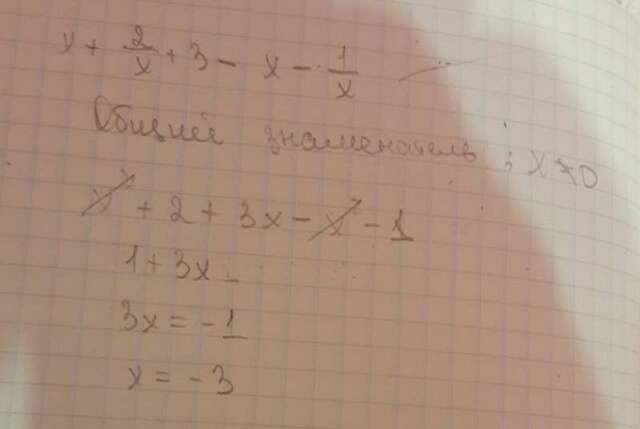 x + 2/x + 3 - x - 1/x
Общий знаменатель ; x ≠ 0
x² + 2 + 3x - x² - 1
1 + 3x
3x = -1
x = -3